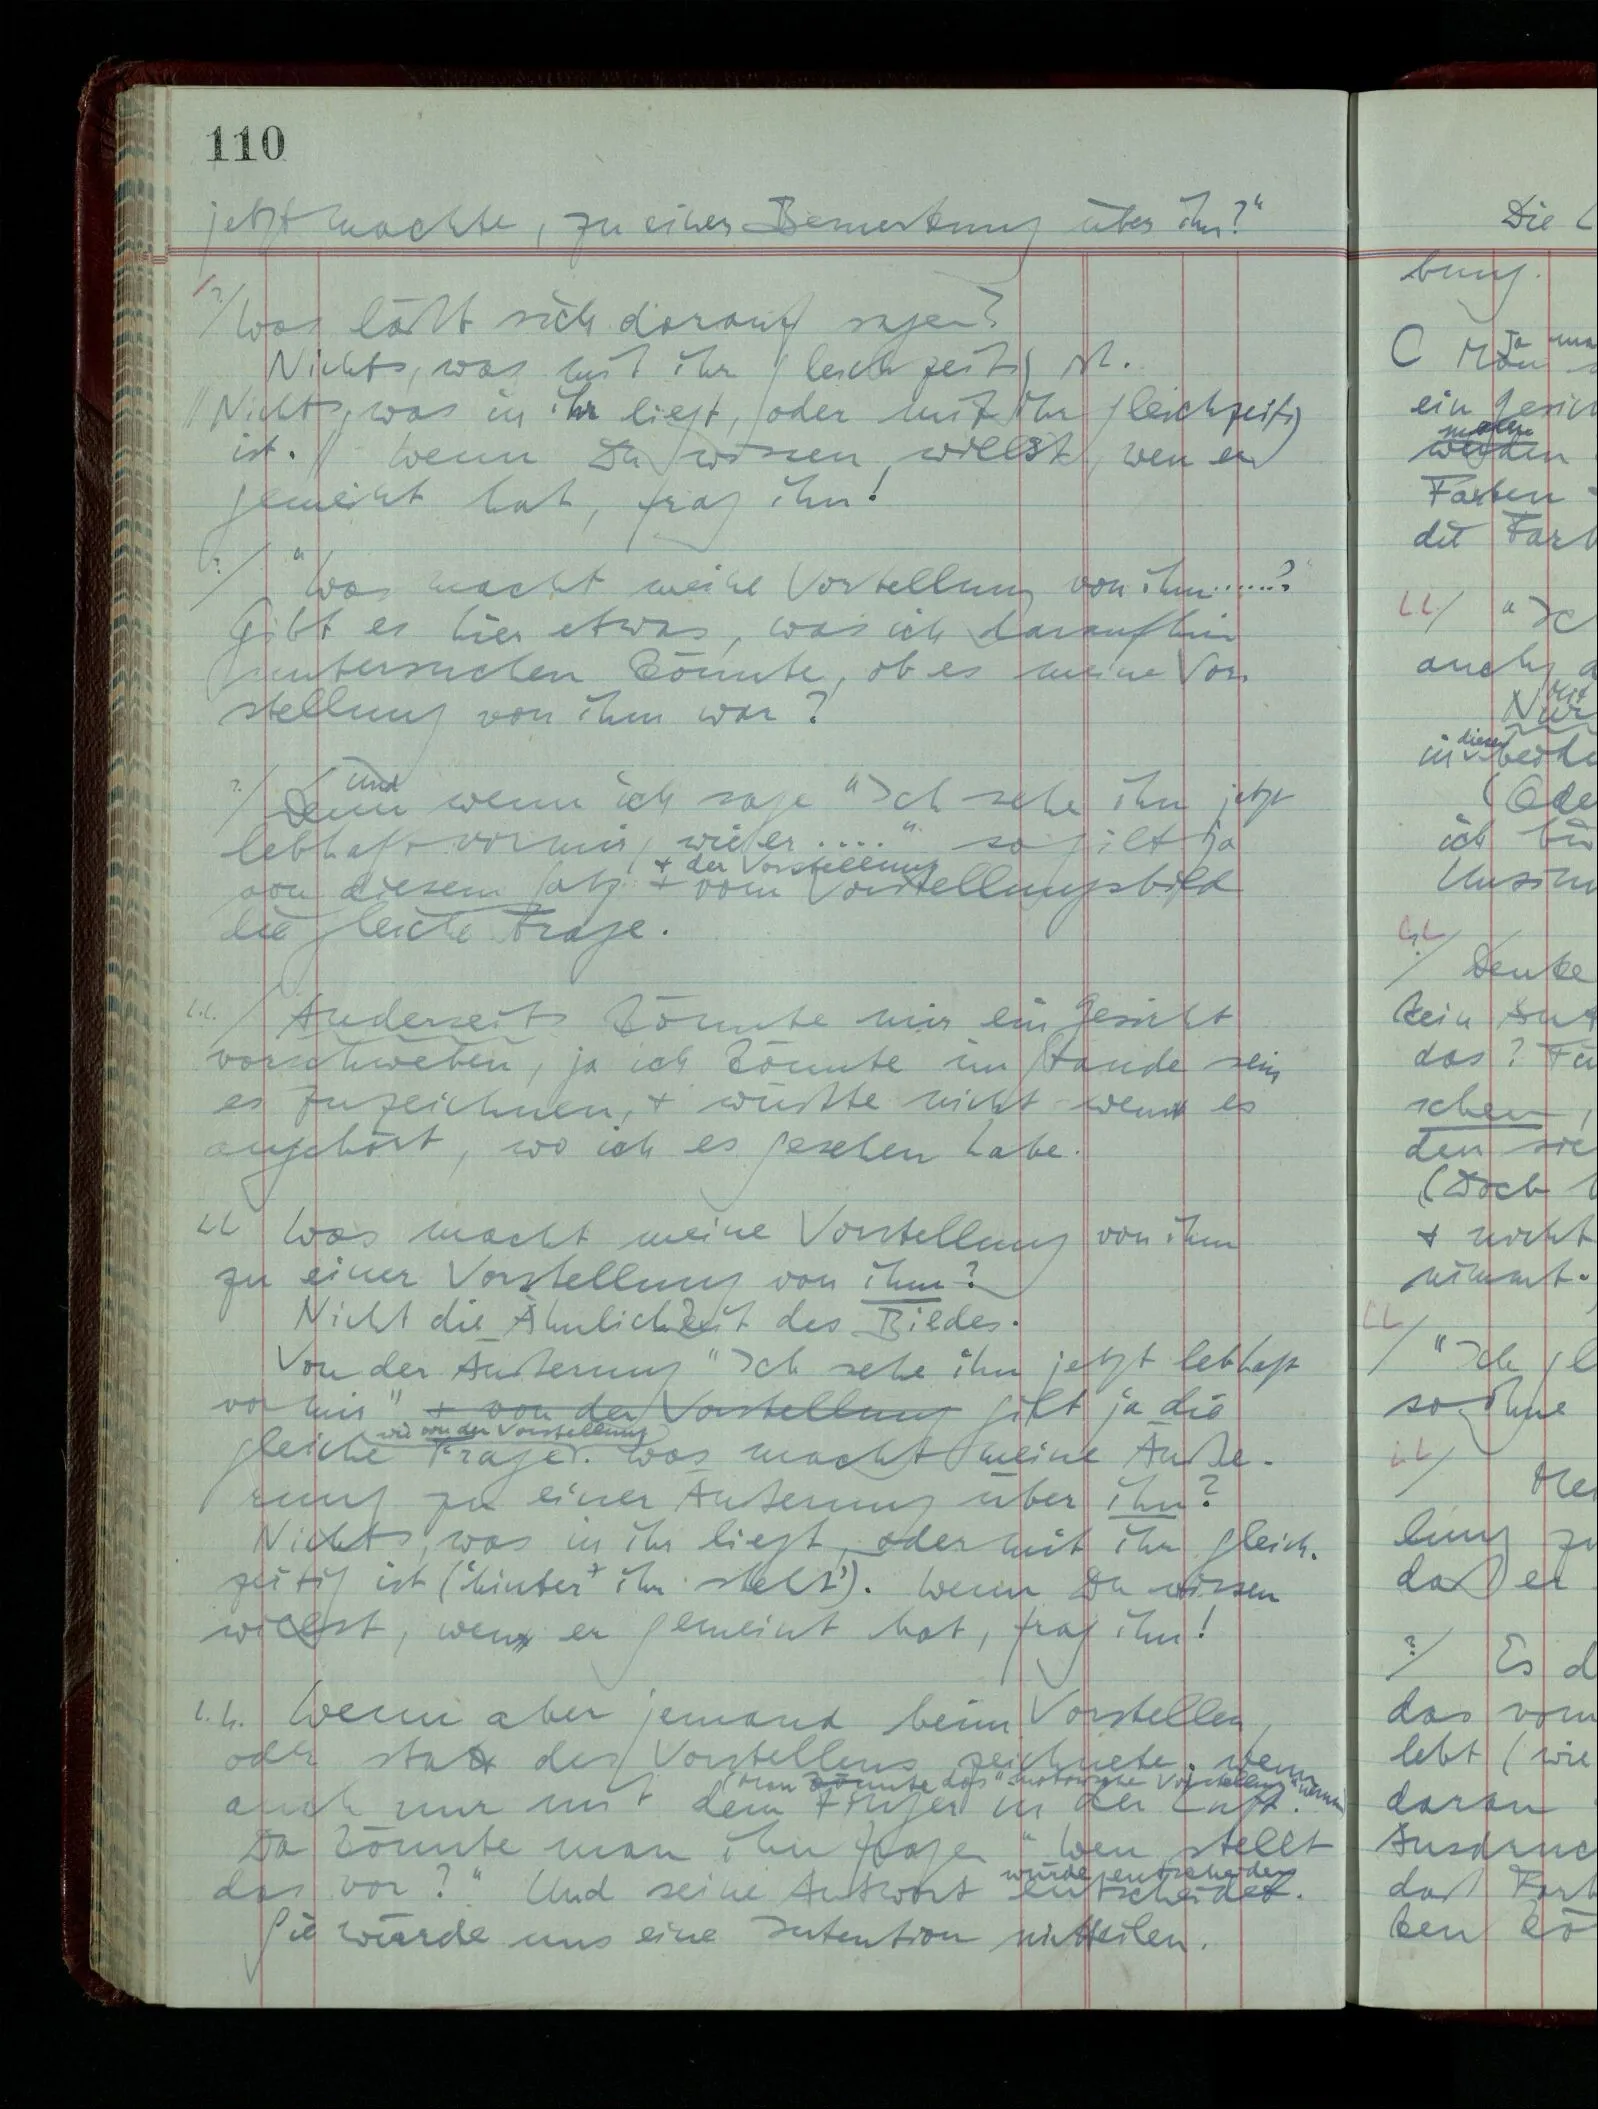 110
jetzt machte, zu einer Bemerkung über ihn?"
?/ Was läßt sich darauf sagen?
Nichts, was mit ihr gleichzeitig ist.
// Nichts, was in ihr liegt, oder mit ihr gleichzeitig
ist. // Wenn Du wissen willst, wen er
gemeint hat, frag ihn!
?/ "Was macht meine Vorstellung von ihm.....?"
Gibt es hier etwas, was ich daraufhin
untersuchen könnte, ob es meine Vor-
stellung von ihm war?
und
?/ Denn wenn ich sage "Ich sehe ihn jetzt
lebhaft vor mir, wie er ...." so gilt ja
+ der Vorstellung
von diesem Satz + vom Vorstellungsbild
die gleiche Frage.
/ Anderseits könnte mir ein Gesicht
vorschweben, ja ich könnte im Stande sein
es zu zeichnen, + wüßte nicht wem es
angehört, wo ich es gesehen habe.
Was macht meine Vorstellung von ihm
zu einer Vorstellung von ihm?
Nicht die Ähnlichkeit des Bildes.
Von der Äußerung "Ich sehe ihn jetzt lebhaft
vor mir" + von der Vorstellung gilt ja die
wie von der Vorstellung
gleiche Frage. Was macht meine Äuße-
rung zu einer Äußerung über ihn?
Nichts, was in ihr liegt, oder mit ihr gleich-
zeitig ist ('hinter' ihr steht'). Wenn Du wissen
willst, wen er gemeint hat, frag ihn!
Wenn aber jemand beim Vorstellen,
oder statt des Vorstellens zeichnete; wenn
(man könnte das "motorische Vorstellung" nennen)
auch nur mit dem Finger in der Luft.
Da könnte man ihn fragen "Wen stellt
würde entscheiden
das vor?" Und seine Antwort entscheidet.
Sie würde uns eine Intention mitteilen.
Die
bung.
ja
C Man
ein Gesich
werden
Farben
die Farb
/ "Ich
auch
Nur
dieser
in
(Ode
ich bin
Unsinn
?/ Denke
kein
das? Fü
schen,
den sie
(Doch
+ nicht
nimmt.
/ "Ich
so ohne
/
lung zu
daß er
?/ Es d
das vom
lebt (wie
daran
Ausdruc
daß Farb
ken kö